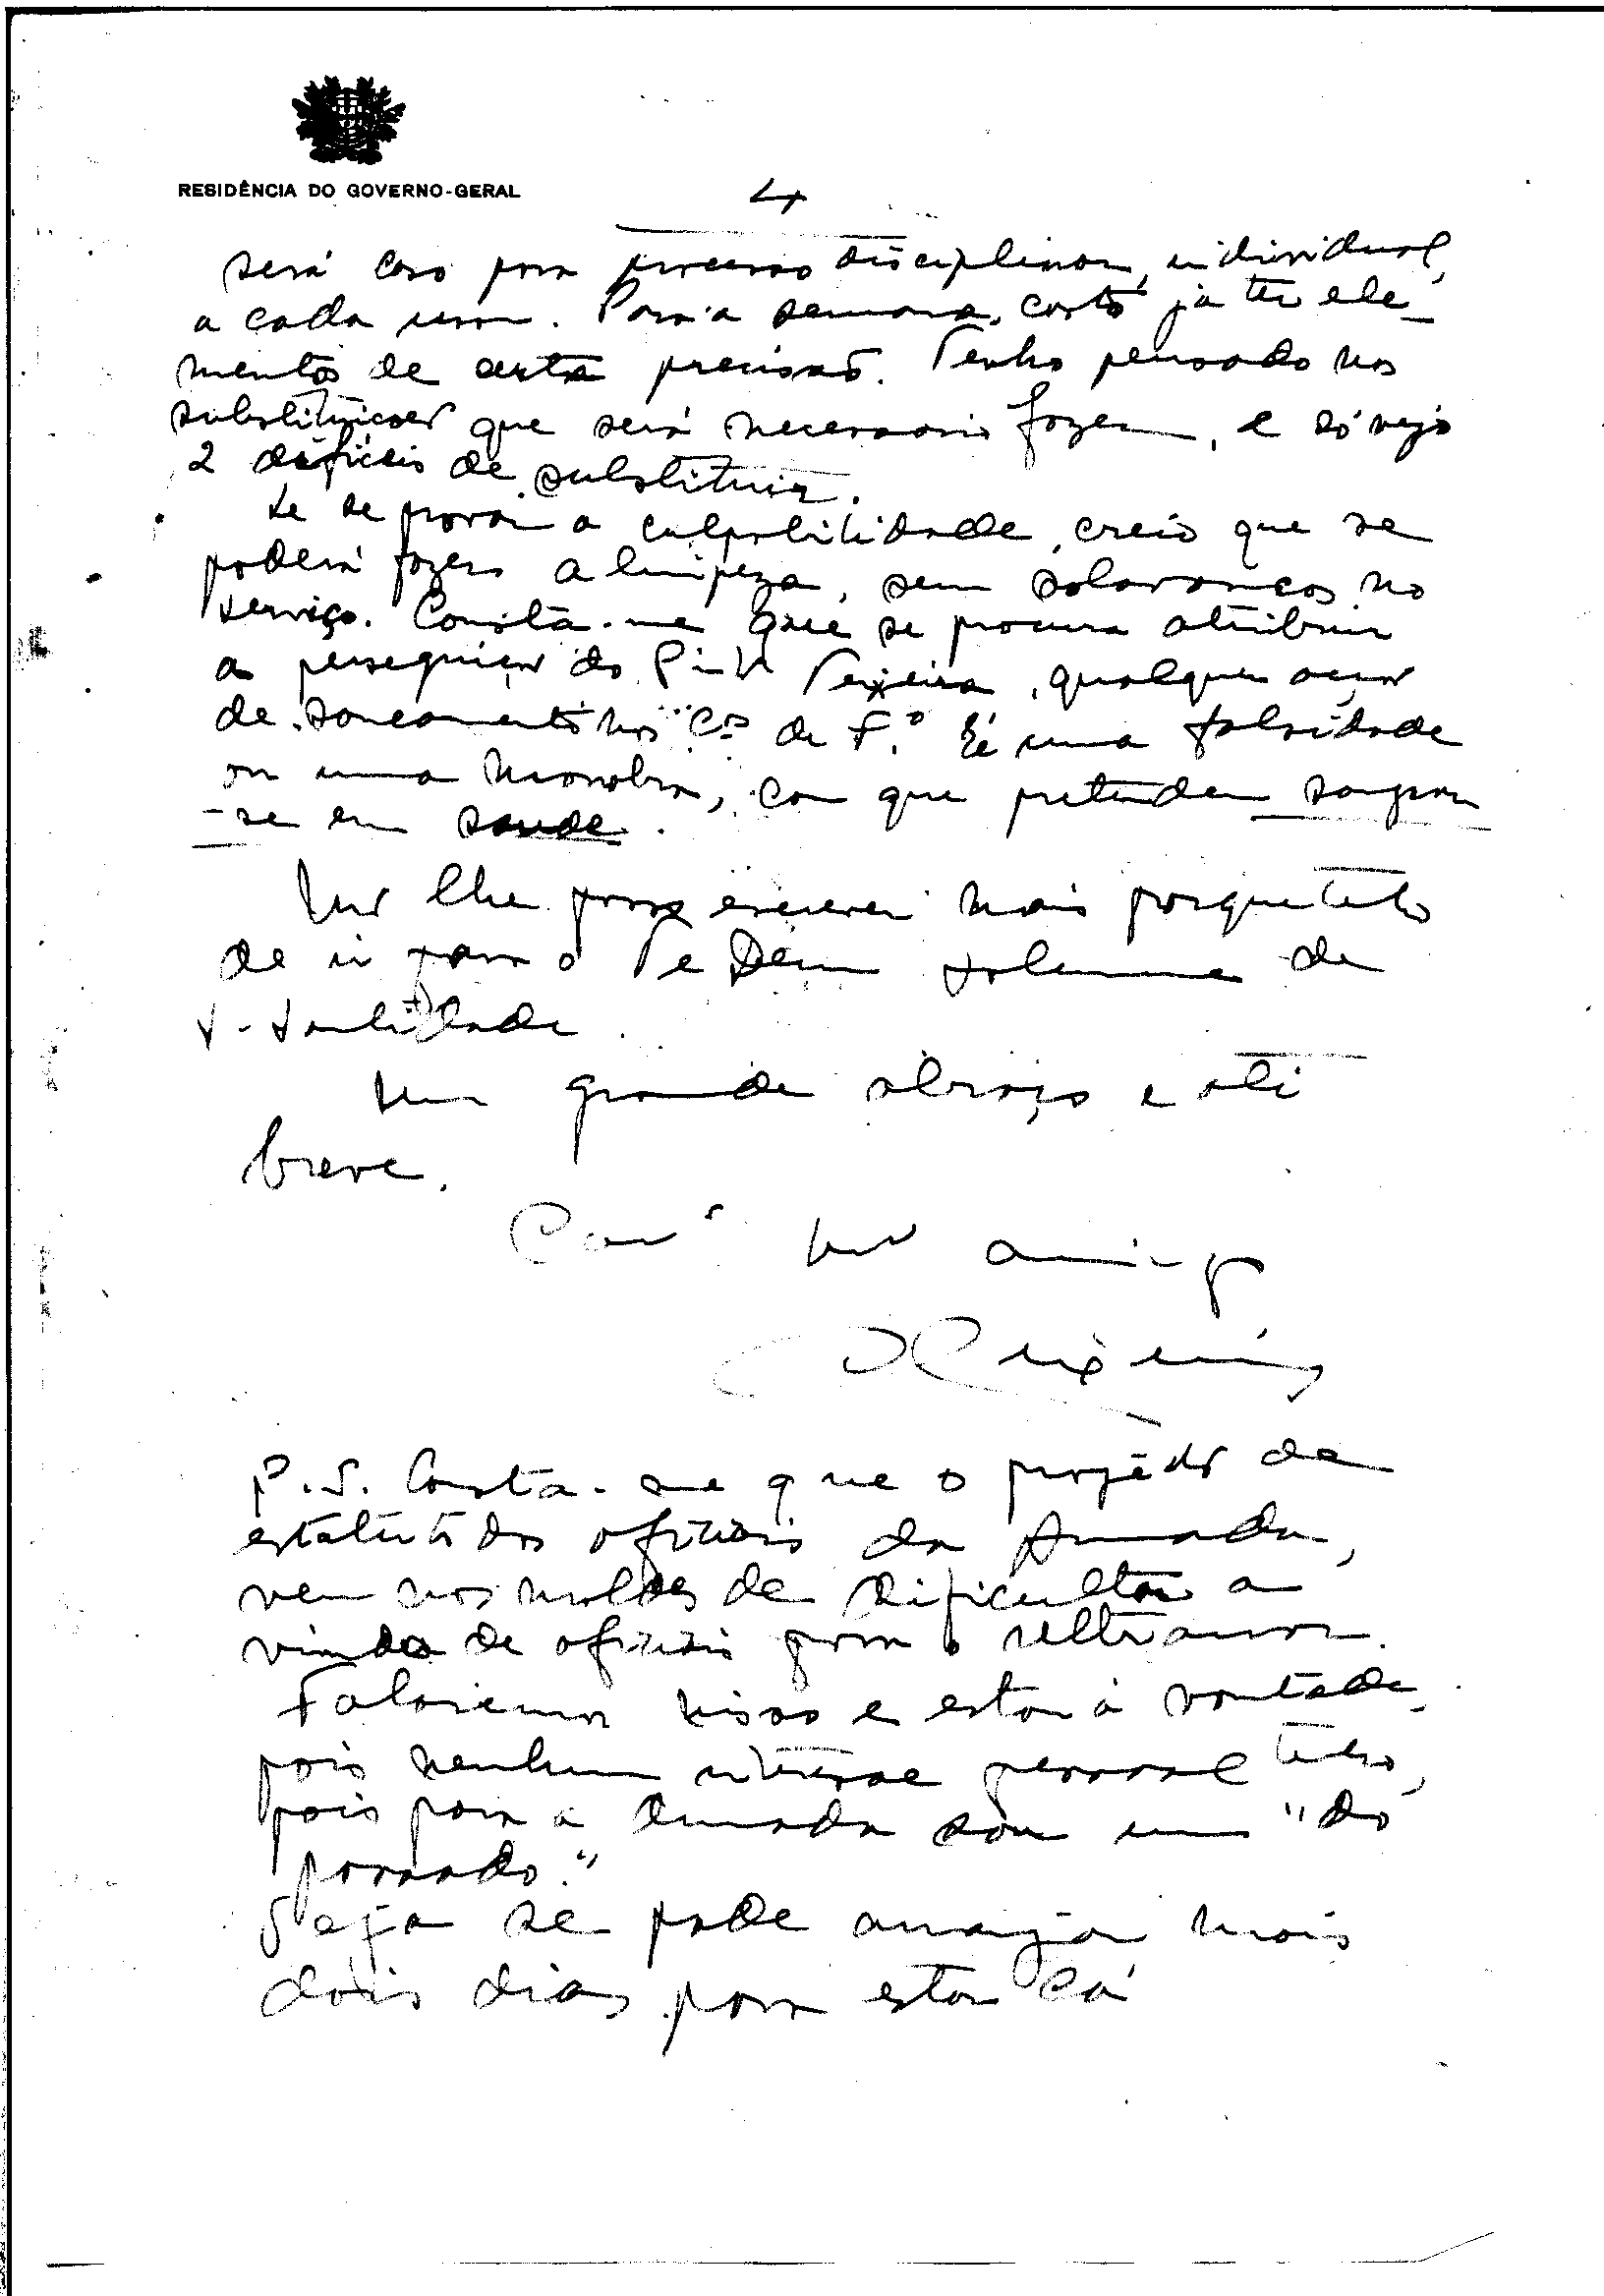 RESIDÊNCIA DO GOVERNO-GERAL
4
será caso para processo disciplinar, individual,
a cada um. Para a semana, conto já ter ele-
mentos de certa precisão. Tenho pensado nas
substituições que será necessario fazer, e só vejo
2 dificeis de substituir.
Se se provar a culpabilidade, creio que se
poderá fazer a limpeza, sem solavancos no
serviço. Consta-me que se procura atribuir
a perseguição do Teixeira, qualquer acção
de saneamento nos C.os de F.o É uma falsidade
ou uma manobra, com que pretendem sangrar
-se em saude.
Não lhe posso escrever mais porque tenho
de ir para o Te Deum solemne de
S. Santidade.
Um grande abraço e até
breve.
amigo
Teixeira
P.S. Consta-me que o projecto de
estatuto dos oficiais da Armada,
vem nos moldes de dificultar a
vinda de oficiais para o ultramar.
Falaremos nisso e estou à vontade,
pois nenhum interesse pessoal tenho,
pois para a Armada sou um "do
passado."
Veja se pode arranjar mais
dois dias para estar cá